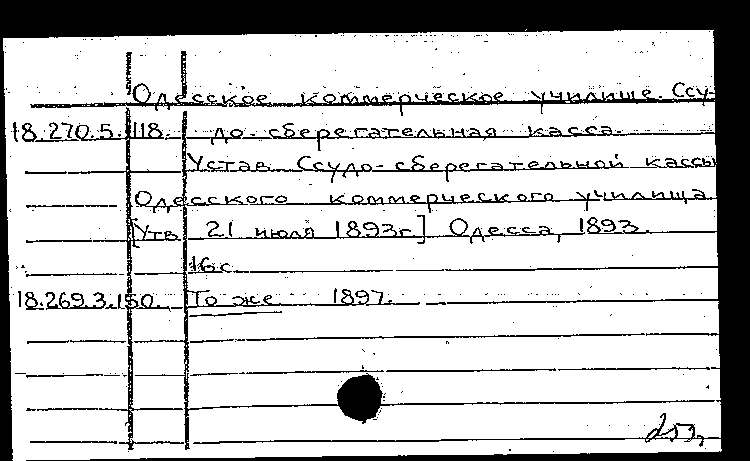 Одесское коммерческое училище. Ссу-
18.270.5.118. до-сберегательная касса.
Устав Ссудо-сберегательной кассы
Одесского коммерческого училища
[Утв. 21 июля 1893г.] Одесса, 1893.
16 с.
18.269.3.150. То же 1897.